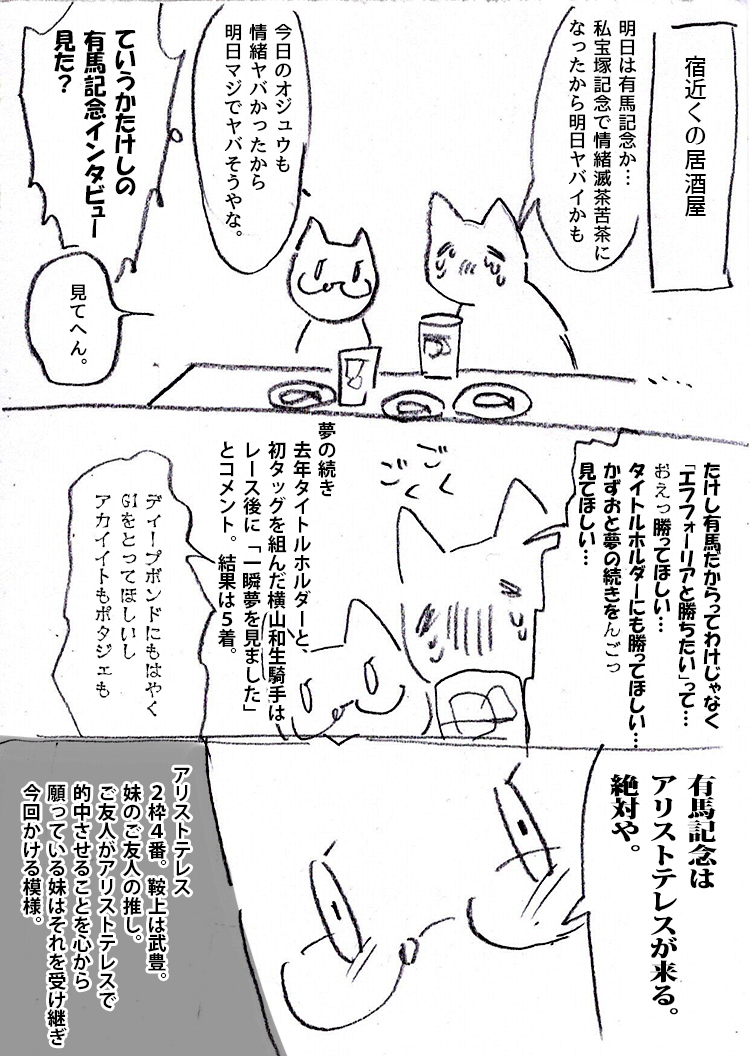 宿近くの居酒屋
明日は有馬記念か…
私宝塚記念で情緒滅茶苦茶に
なったから明日ヤバイかも
今日のオジュウも
情緒ヤバかったから
明日マジでヤバそうやな。
ていうかたけしの
有馬記念インタビュー
見た?
見てへん。
たけし有馬だからってわけじゃなく
「エフフォーリアと勝ちたい」って…
おえっ勝ってほしい…
タイトルホルダーにも勝ってほしい…
かずおと夢の続きをんごっ
見てほしい…
ごく
ごく
夢の続き
去年タイトルホルダーと、
初タッグを組んだ横山和生騎手は
レース後に「一瞬夢を見ました」
とコメント。結果は5着。
ディープボンドにもはやく
G1をとってほしいし
アカイイトもポタジェも
有馬記念は
アリストテレスが来る。
絶対や。
アリストテレス
2枠4番。鞍上は武豊。
妹のご友人の推し。
ご友人がアリストテレスで
的中させることを心から
願っている妹はそれを受け継ぎ
今回かける模様。